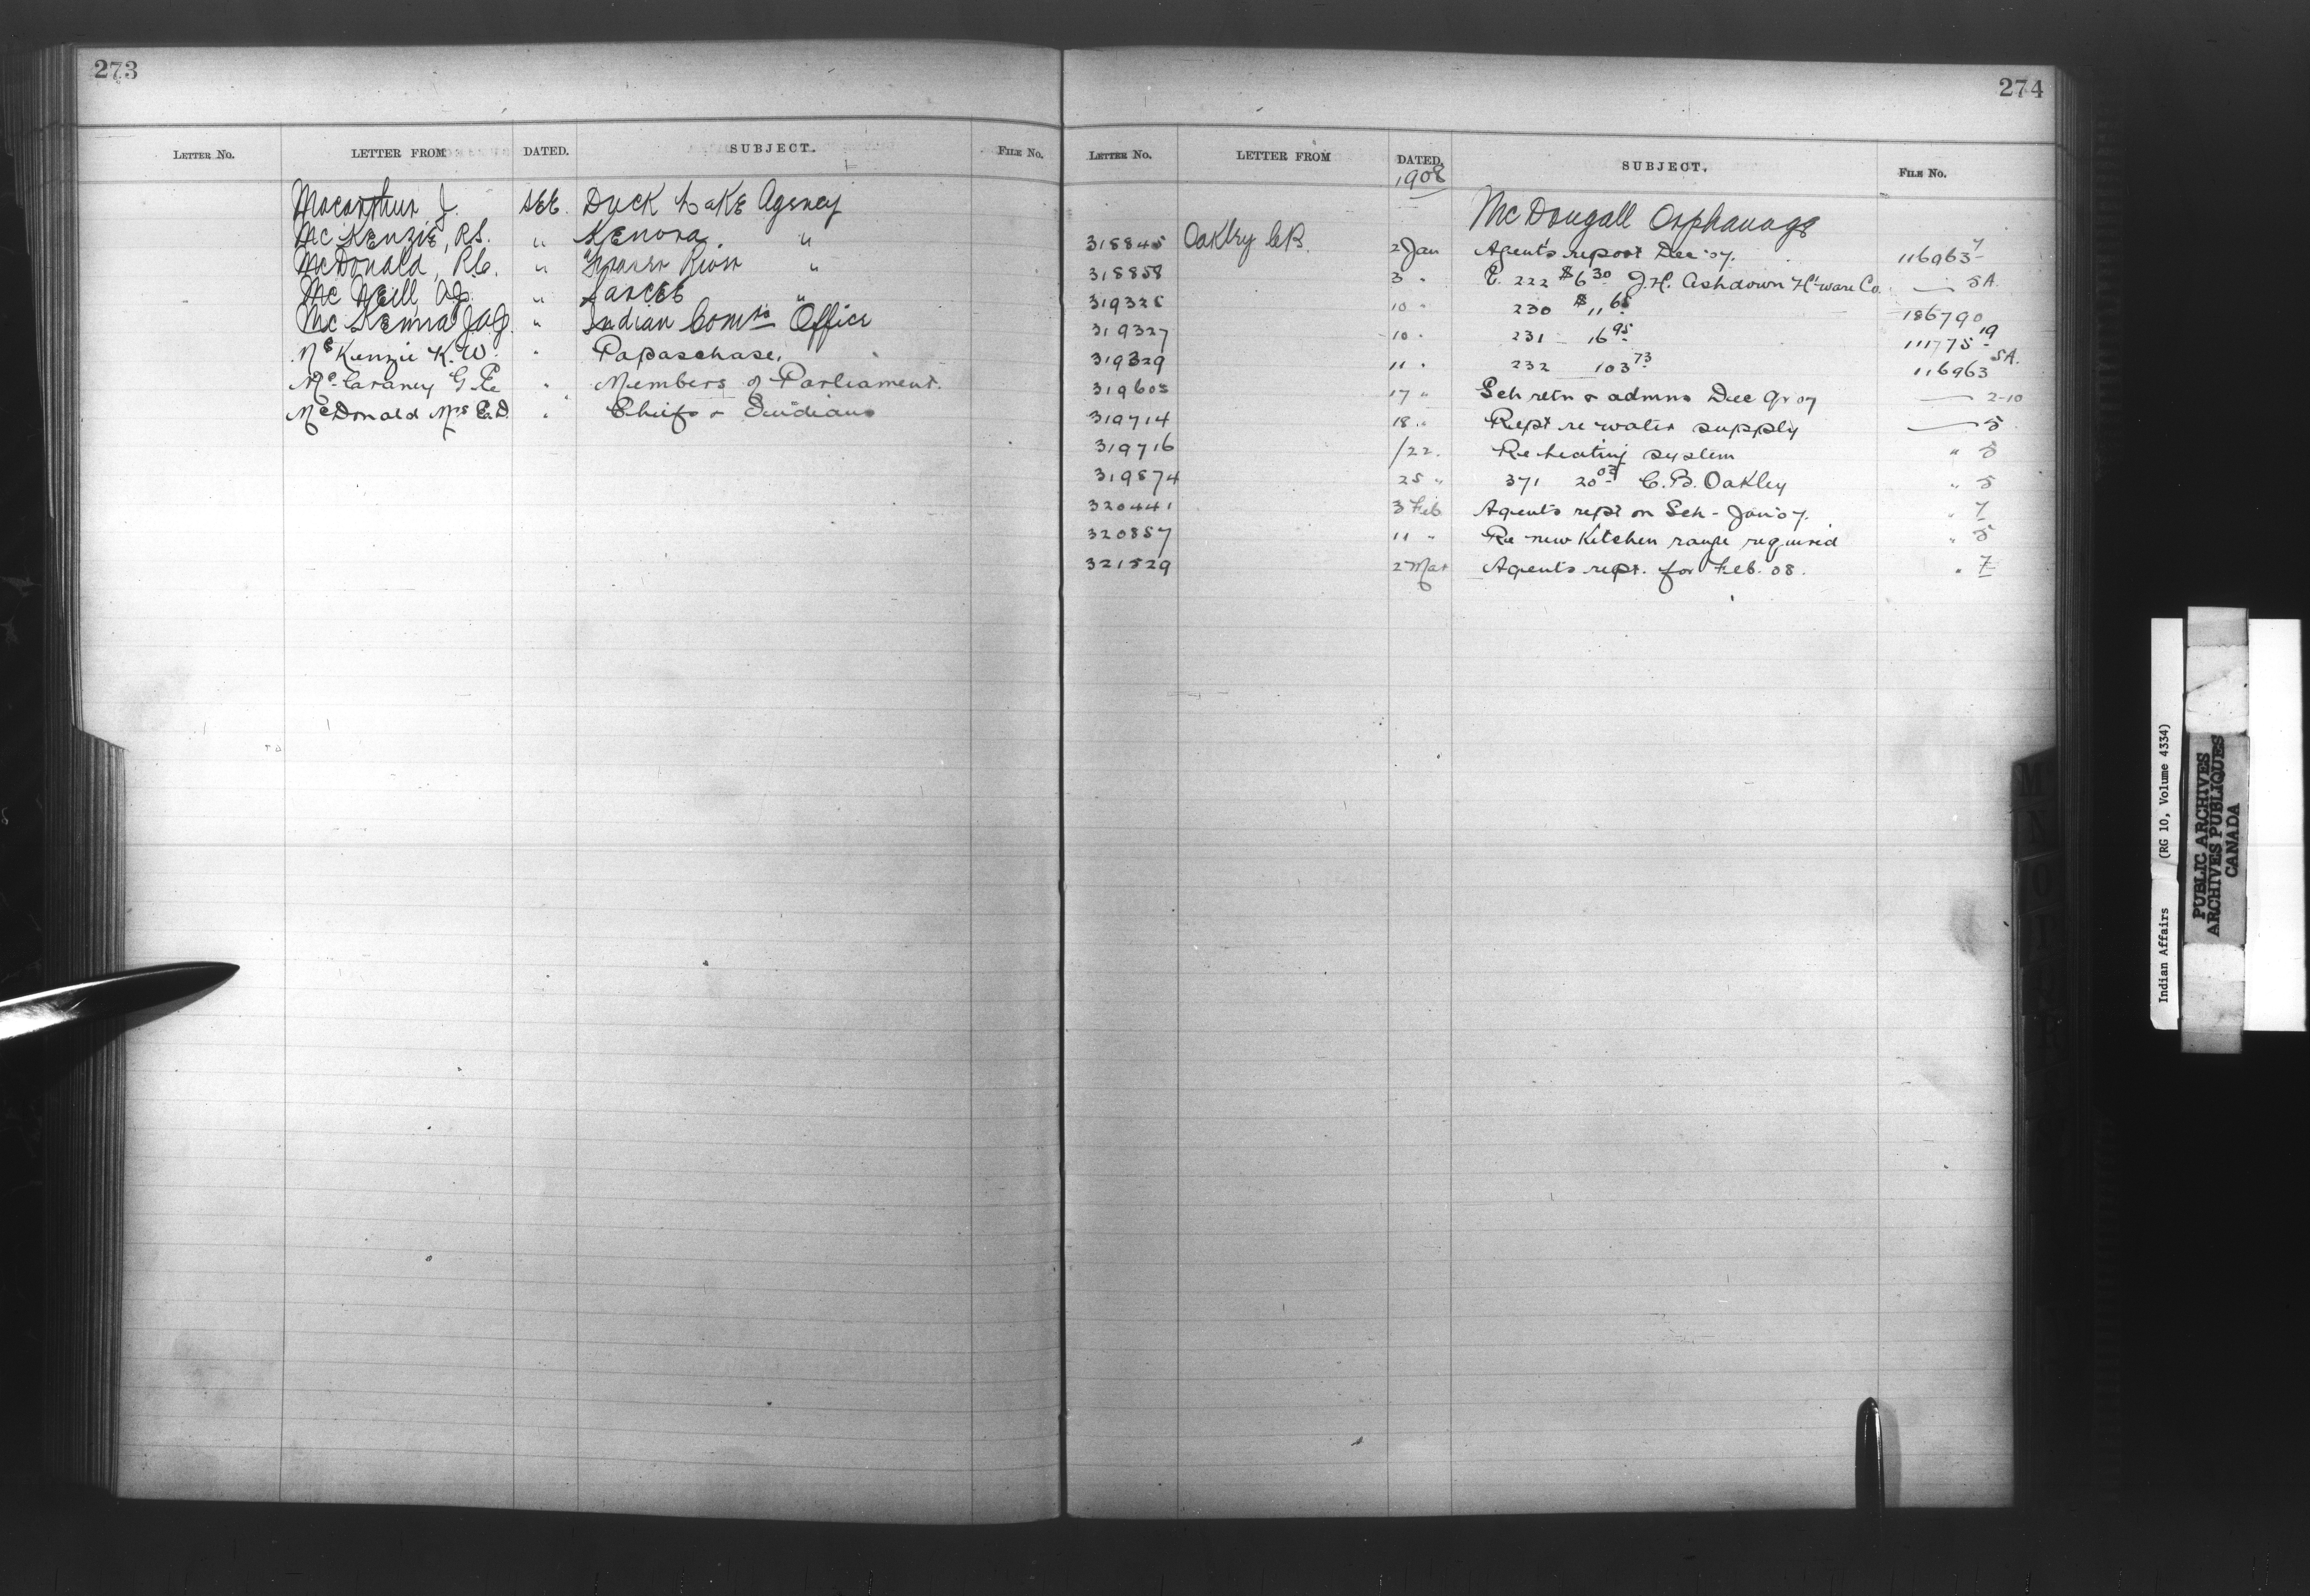 273
LETTER NO. LETTER FROM DATED. SUBJECT. FILE No.
Macarthur J. SEE. Duck Lake Agency
McKenzie, R.S. " Kenora. "
McDonald, R.C. " "
McNeill, A.J. " Sarcee "
McKenna J.A.J. " Indian Comrs Office
McKenzie K.W. " Papaschase.
McCraney G.E. " Members of Parliament.
McDonald Mrs E.D. " Chiefs & Indians
274
LETTER No. LETTER FROM DATED. SUBJECT. FILE No.
1908
McDougall Orphanage
318845 Oakley C.B. 2 Jan Agent's report Dec '07. 116963-7
318858 3 " E. 222 $6.30 J.H. Ashdown H'ware Co. — 5A.
319325 10 " 230 $11.65 186790
319327 10 " 231 16.95 111775-19
319329 11 " 232 103.73 116963 5A.
319603 17 " Sch retn & admns Dec Qr 07 — 2-10
319714 18 " Rept re water supply — 5
319716 /22. Re heating system " 5
319874 25 " 371 20.03 C.B. Oakley " 5
320441 3 Feb Agents rept on Sch - Jan 07. " 7
320857 11 " Re new Kitchen range required " 5
321529 2 Mar Agents rept. for Feb. 08. " 7
M
N
O
Indian Affairs (RG 10, Volume 4334)
PUBLIC ARCHIVES
ARCHIVES PUBLIQUES
CANADA